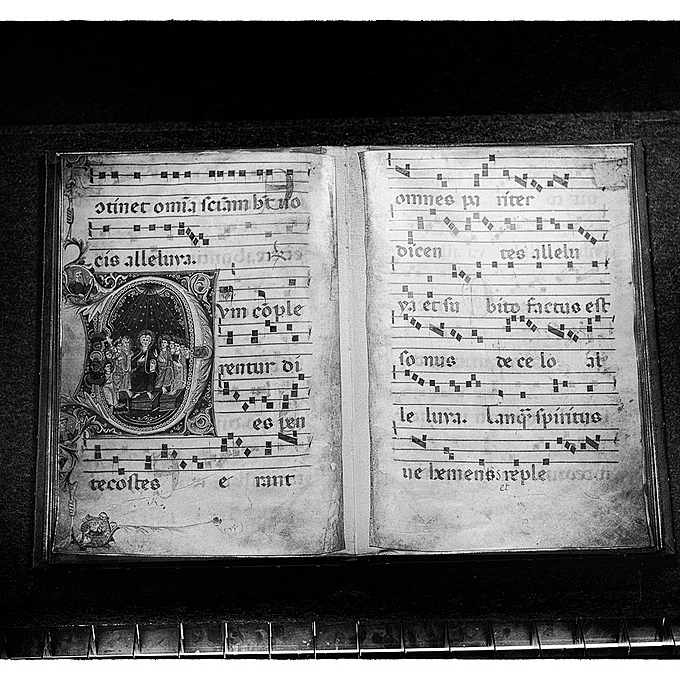 otinet omīa sciam hт uo
cis alleluya.
ym cōple
rentur di
es pen
tecostes e rant
omnes pa riter
dicen tes allelu
ya et su bito factus est
so nus de ce lo al
le luya. Tanq̄ spiritus
ue hemens reple
et